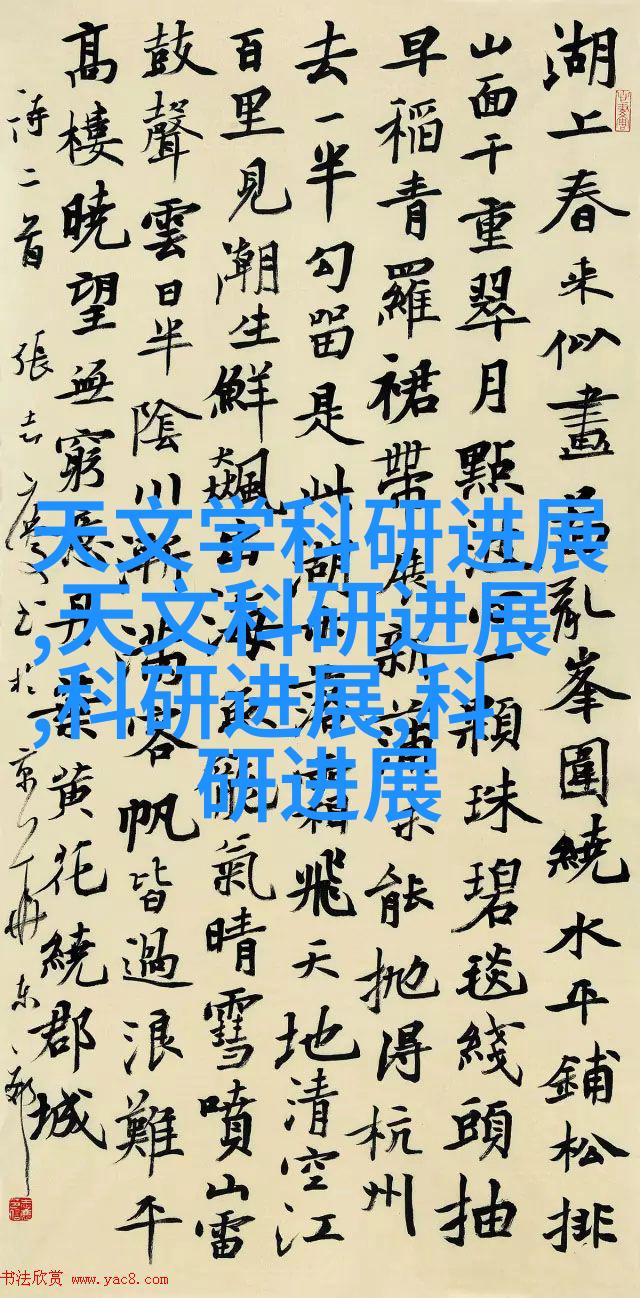 湖上春来似畫啚亂峯圍繞水平鋪松排
山面千重翠月點波心一顆珠碧毯綫頭抽
早稻青羅裙帶展新蒲未能抛得杭州
去一半勾留是此湖落飛天地清空江
百里見潮生鮮飈出海龍氣晴雪噴山雷
鼓聲雲日半陰川漸滿客帆皆過浪難平
高樓曉望無窮思丹葉黄花繞郡城
詩二首 張志慶書於京
天文学科研进展
,天文科研进展
,科研进展,科
研进展
书法欣赏 www.yac8.com